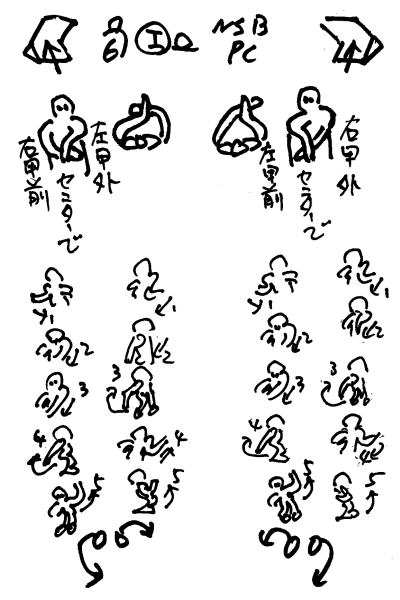 6 I NSB
PC
右甲前
センターで
左甲外
左甲前
センターで
右甲外
1 1 1
2 2 2 2
3 3 3 3
4 4 4 4
5 5 5 5